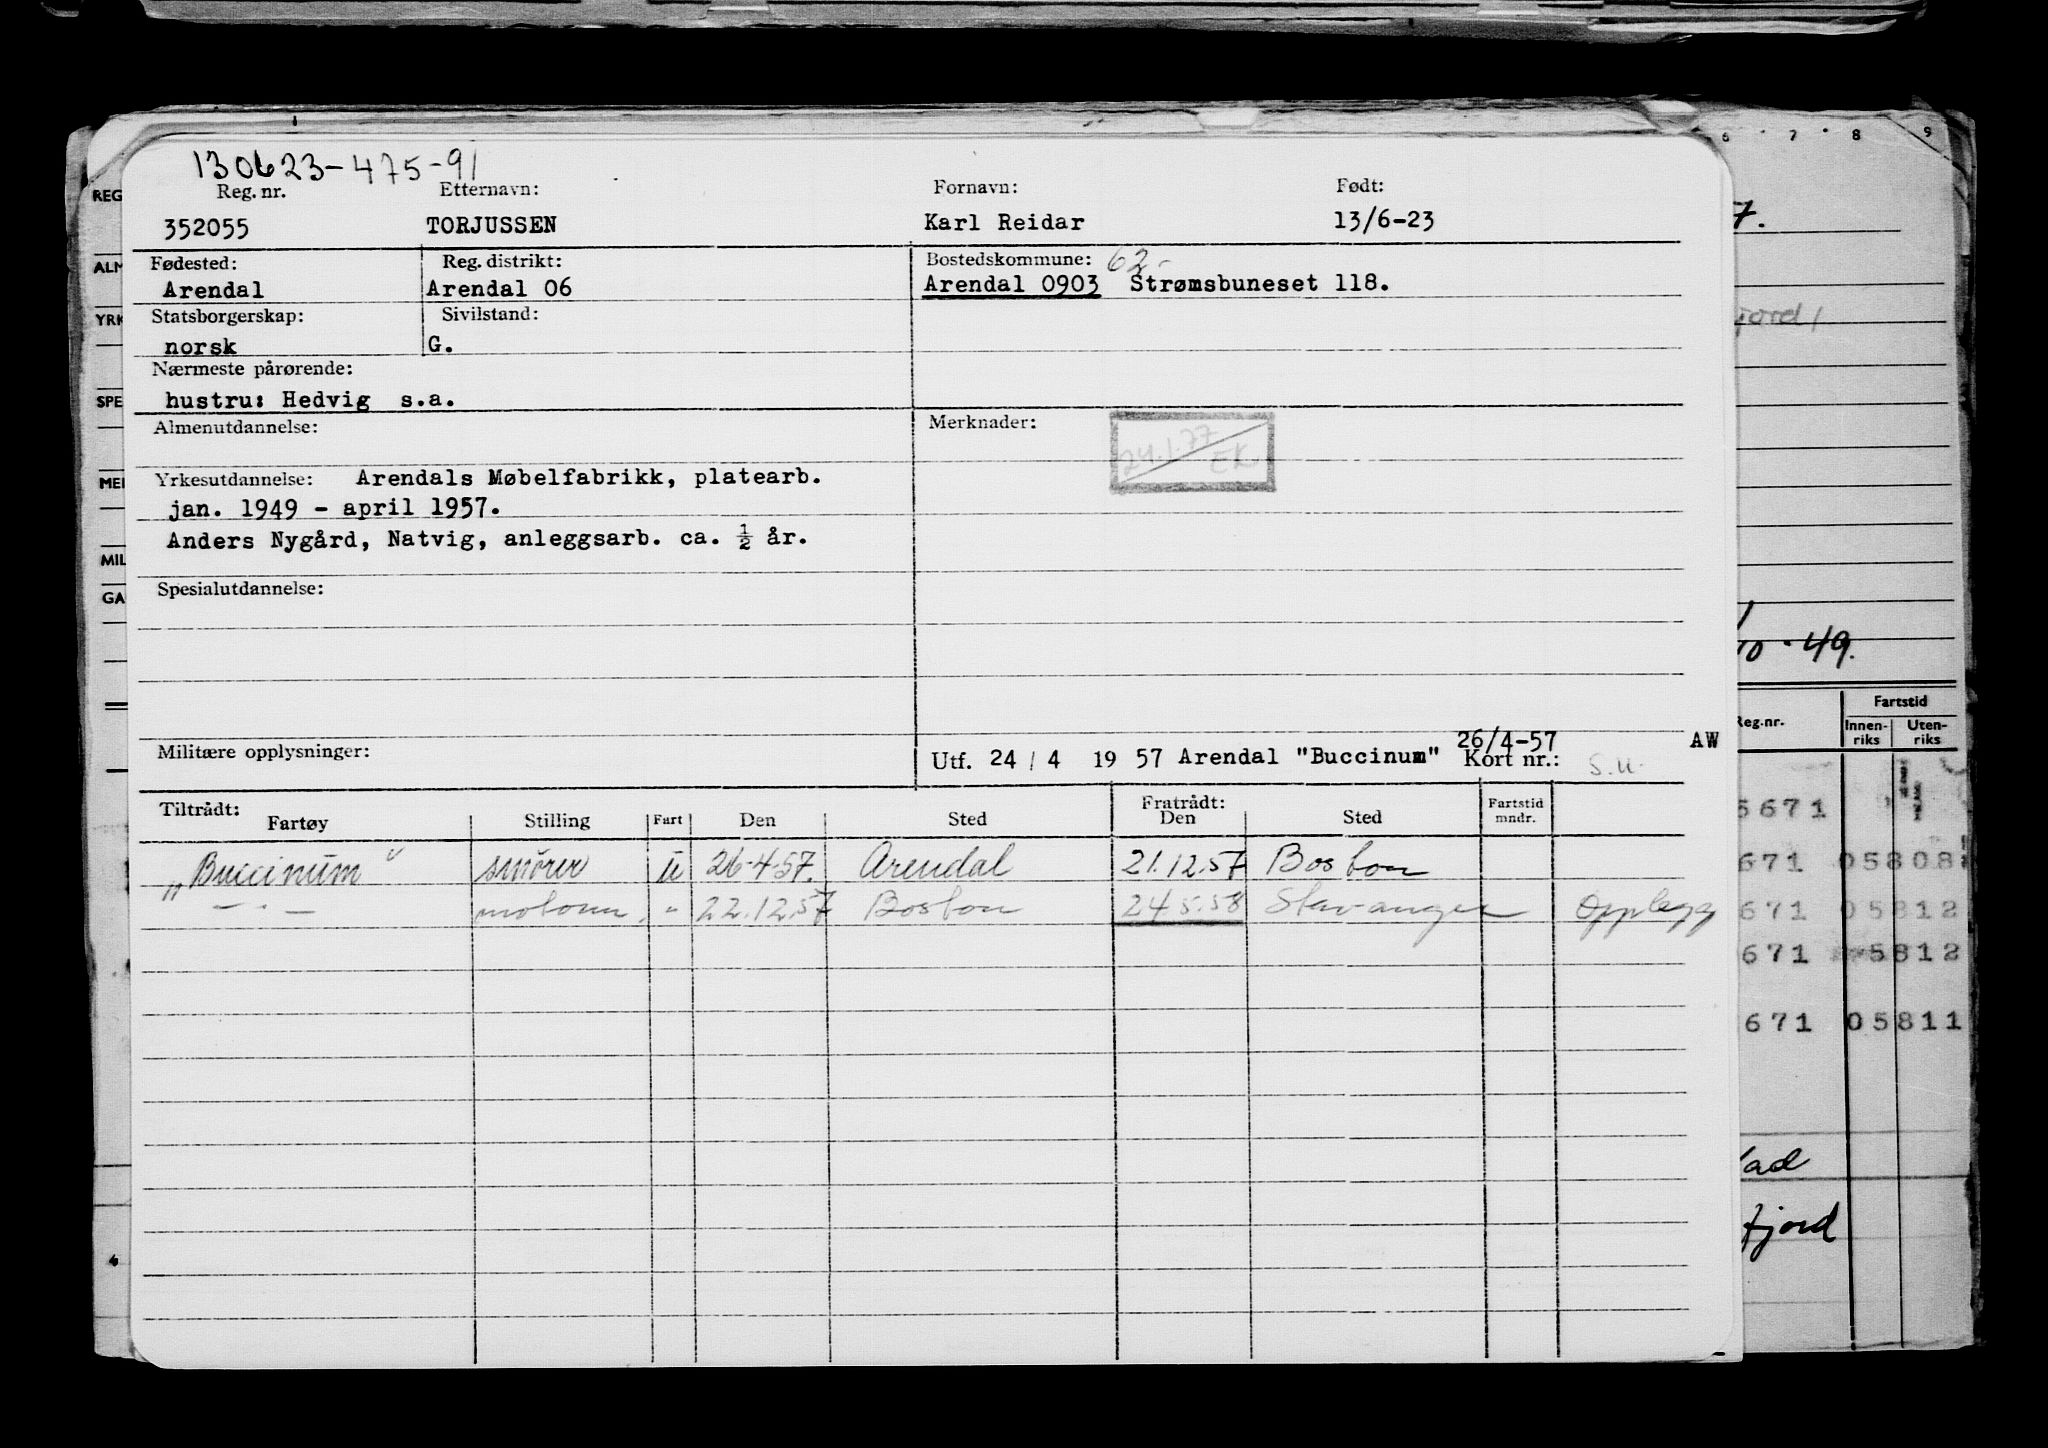 130623-475-91
Reg. nr. Etternavn: Fornavn: Født:
352055 TORJUSSEN Karl Reidar 13/6-23
Fødested: Reg. distrikt: Bostedskommune: 62-
Arendal Arendal 06 Arendal 0903 Strømsbuneset 118.
Statsborgerskap: Sivilstand:
norsk G.
Nærmeste pårørende:
hustru: Hedvig s.a.
Almenutdannelse: Merknader:
24.1.77 EK
Yrkesutdannelse: Arendals Møbelfabrikk, platearb.
jan. 1949 - april 1957.
Anders Nygård, Natvig, anleggsarb. ca. ½ år.
Spesialutdannelse:
26/4-57 AW
Militære opplysninger: Utf. 24 / 4 19 57 Arendal "Buccinum" Kort nr.: S.U.
Tiltrådt: Fratrådt: Fartstid
Fartøy Stilling Fart Den Sted Den Sted mndr.
"Buccinum" smører u 26-4-57. Arendal 21.12.57 Boston
— " — motorm. " 22.12.57 Boston 24 5.58 Stavanger Opplegg
REG
ALM
YRK
SPE
MEI
MIL
GA
4
6 7 8 9
7.
jord/
10.49.
Reg.nr. Fartstid
Innen-riks Uten-riks
5671
671 05808
671 05812
671 5812
671 05811
fjord